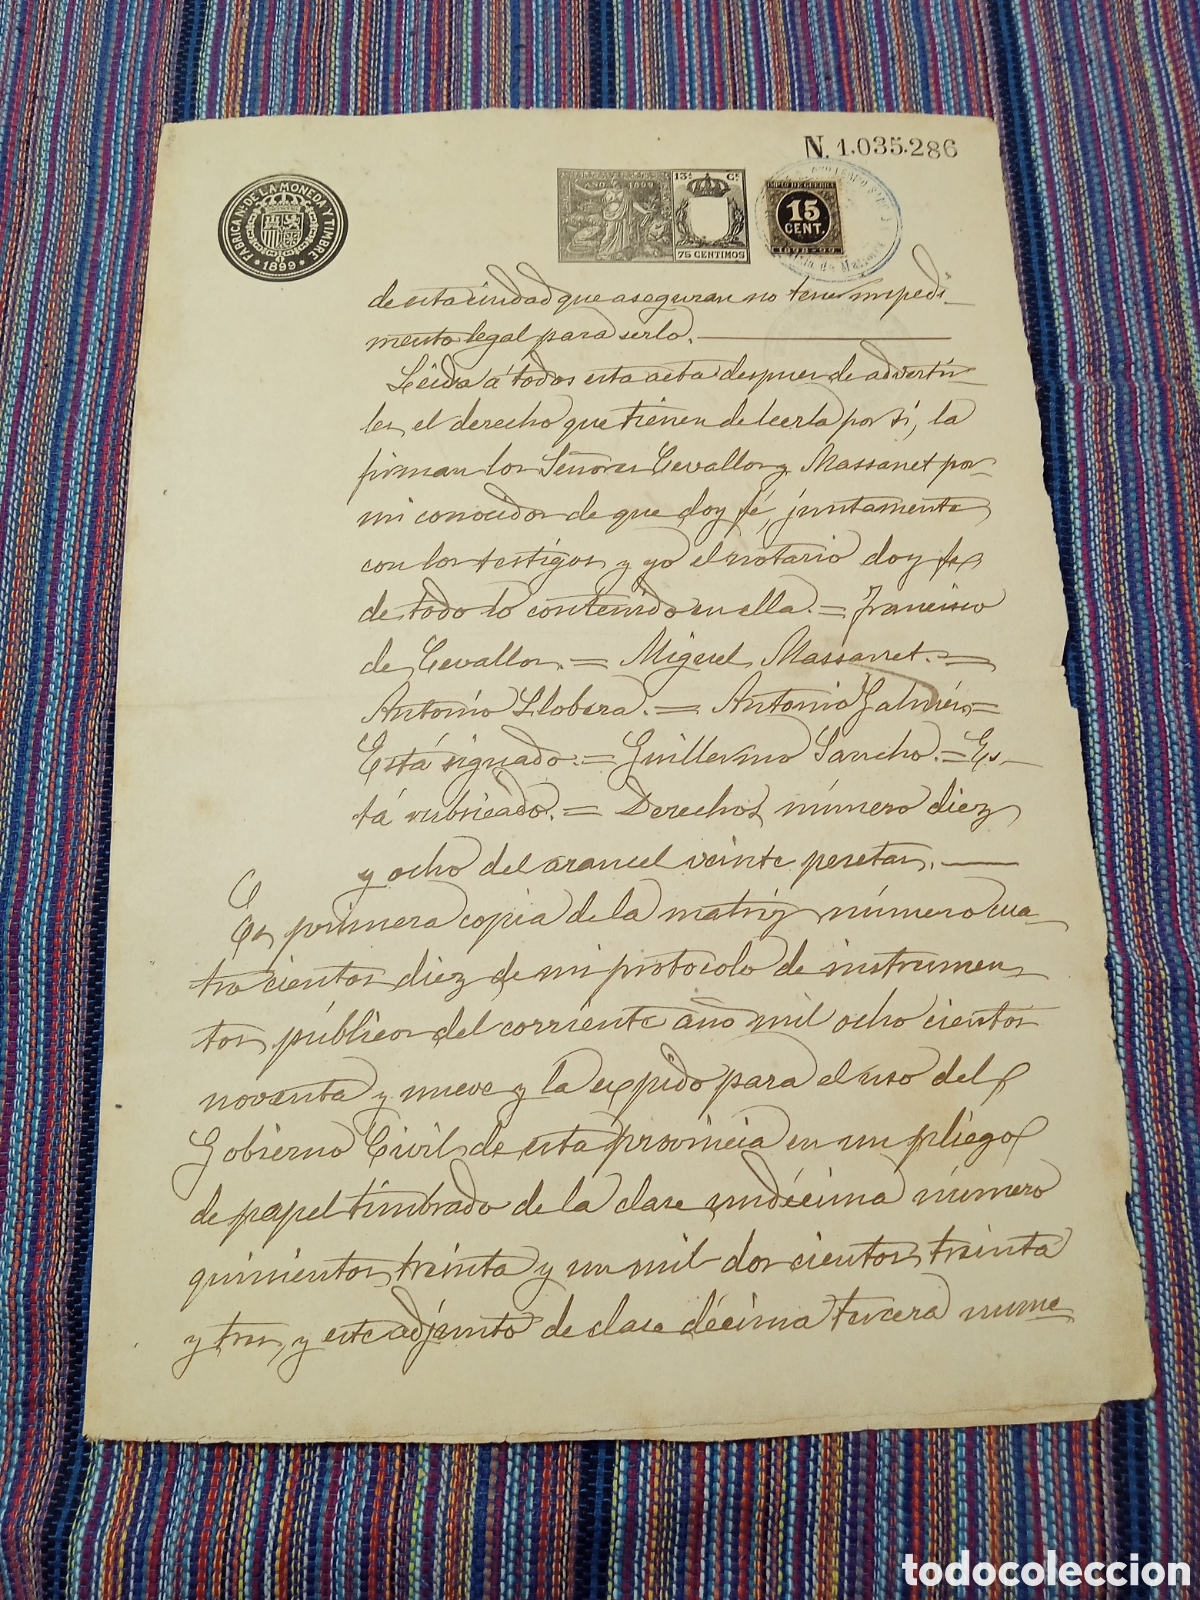 N. 1.035.286
FABRICA Nal DE LA MONEDA Y TIMBRE
· 1899 ·
AÑO 1899
13ª Cª
75 CENTIMOS
IMPTO DE GUERRA
15
CENT.
1898-99
de esta ciudad que aseguran no tener impedi-
mento legal para serlo.
Leida á todos esta acta despues de advertir-
les el derecho que tienen de leerla por si, la
firman los Señores Cevallos y Massanet por
mi conocidos de que doy fé, juntamente
con los testigos y yo el notario doy fe
de todo lo contenido en ella. = Francisco
de Cevallos. = Miguel Massanet. =
Antonio Llobera. = Antonio Galmés =
Está signado. = Guillermo Sancho. = Es-
tá rubricado. = Derechos número diez
y ocho del arancel veinte pesetas.
Es primera copia de la matriz número cua-
trocientos diez de mi protocolo de instrumen
tos públicos del corriente año mil ocho cientos
noventa y nueve y la expido para el uso del
Gobierno Civil de esta provincia en un pliego
de papel timbrado de la clase undécima número
quinientos treinta y un mil doscientos treinta
y tres, y este adjunto de clase décima tercera núme
todocoleccion